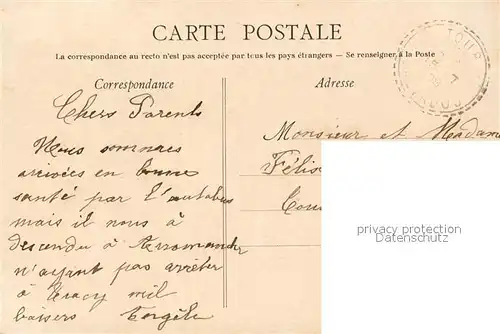 CARTE POSTALE
La correspondance au recto n'est pas acceptée par tous les pays étrangers — Se renseigner à la Poste
Correspondance
Adresse
Chers Parents
Nous sommes
arrivées en bonne
santé par l'autobus
mais il nous à
descendu à Arromanche
n'ayant pas arrêter
à Tracy mil
baisers
Monsieur et Madam
Félix
privacy protection
Datenschutz